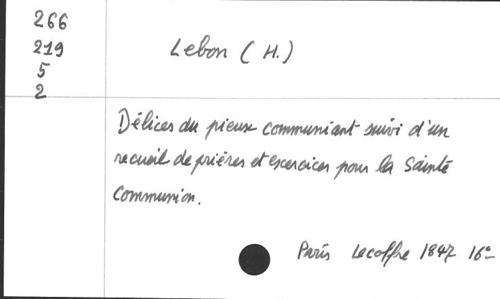 266
219
5
2
Lebon (H.)
Délices du pieux communiant suivi d'un
recueil de prières et exercices pour la Sainte
Communion.
Paris Lecoffre 1847 16°